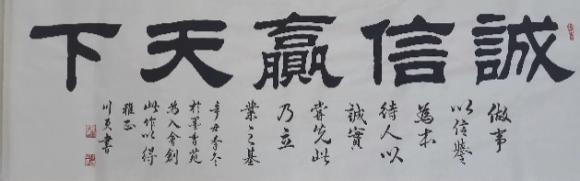 誠信贏天下
做事
以信譽
為本
待人以
誠實
當先此
乃立
業之基
辛丑季冬
於墨書苑
為入會創
此作以得
雅正
書